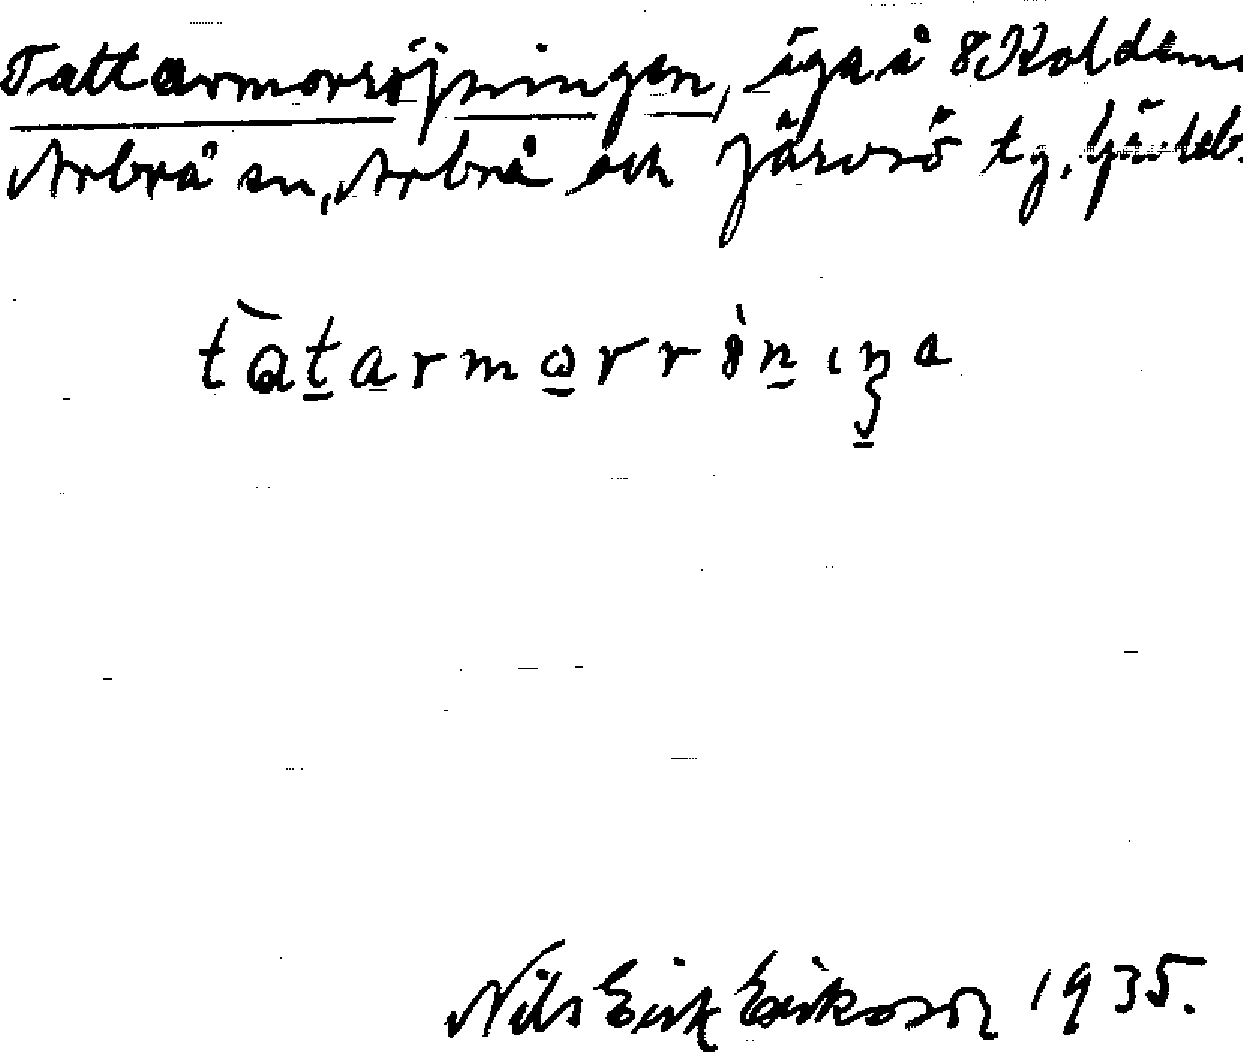 Tattarmorröjningen, äga å 8 Koldemo
Arbrå sn, Arbrå och Järvsö tg, Gävleb.
tatarmorrönıŋa
Nils Erik Eriksson 1935.